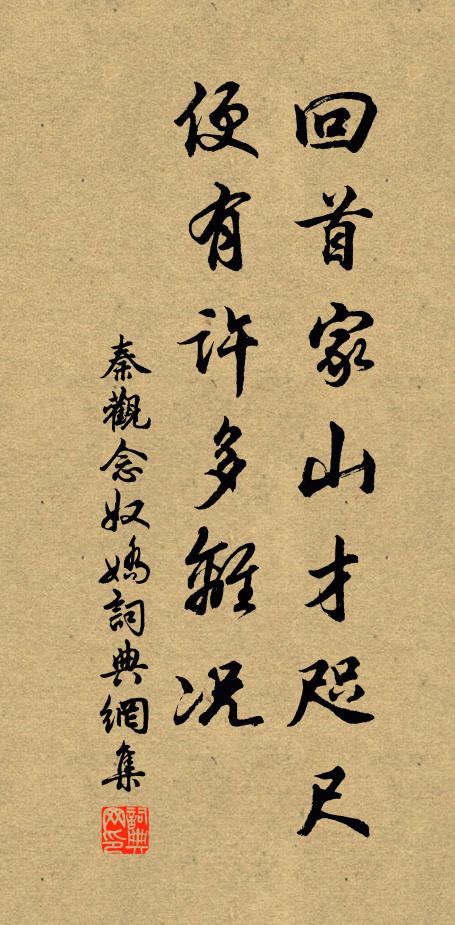 回首家山才咫尺
便有許多離况
秦觀念奴嬌詞典網集
詞典
网印